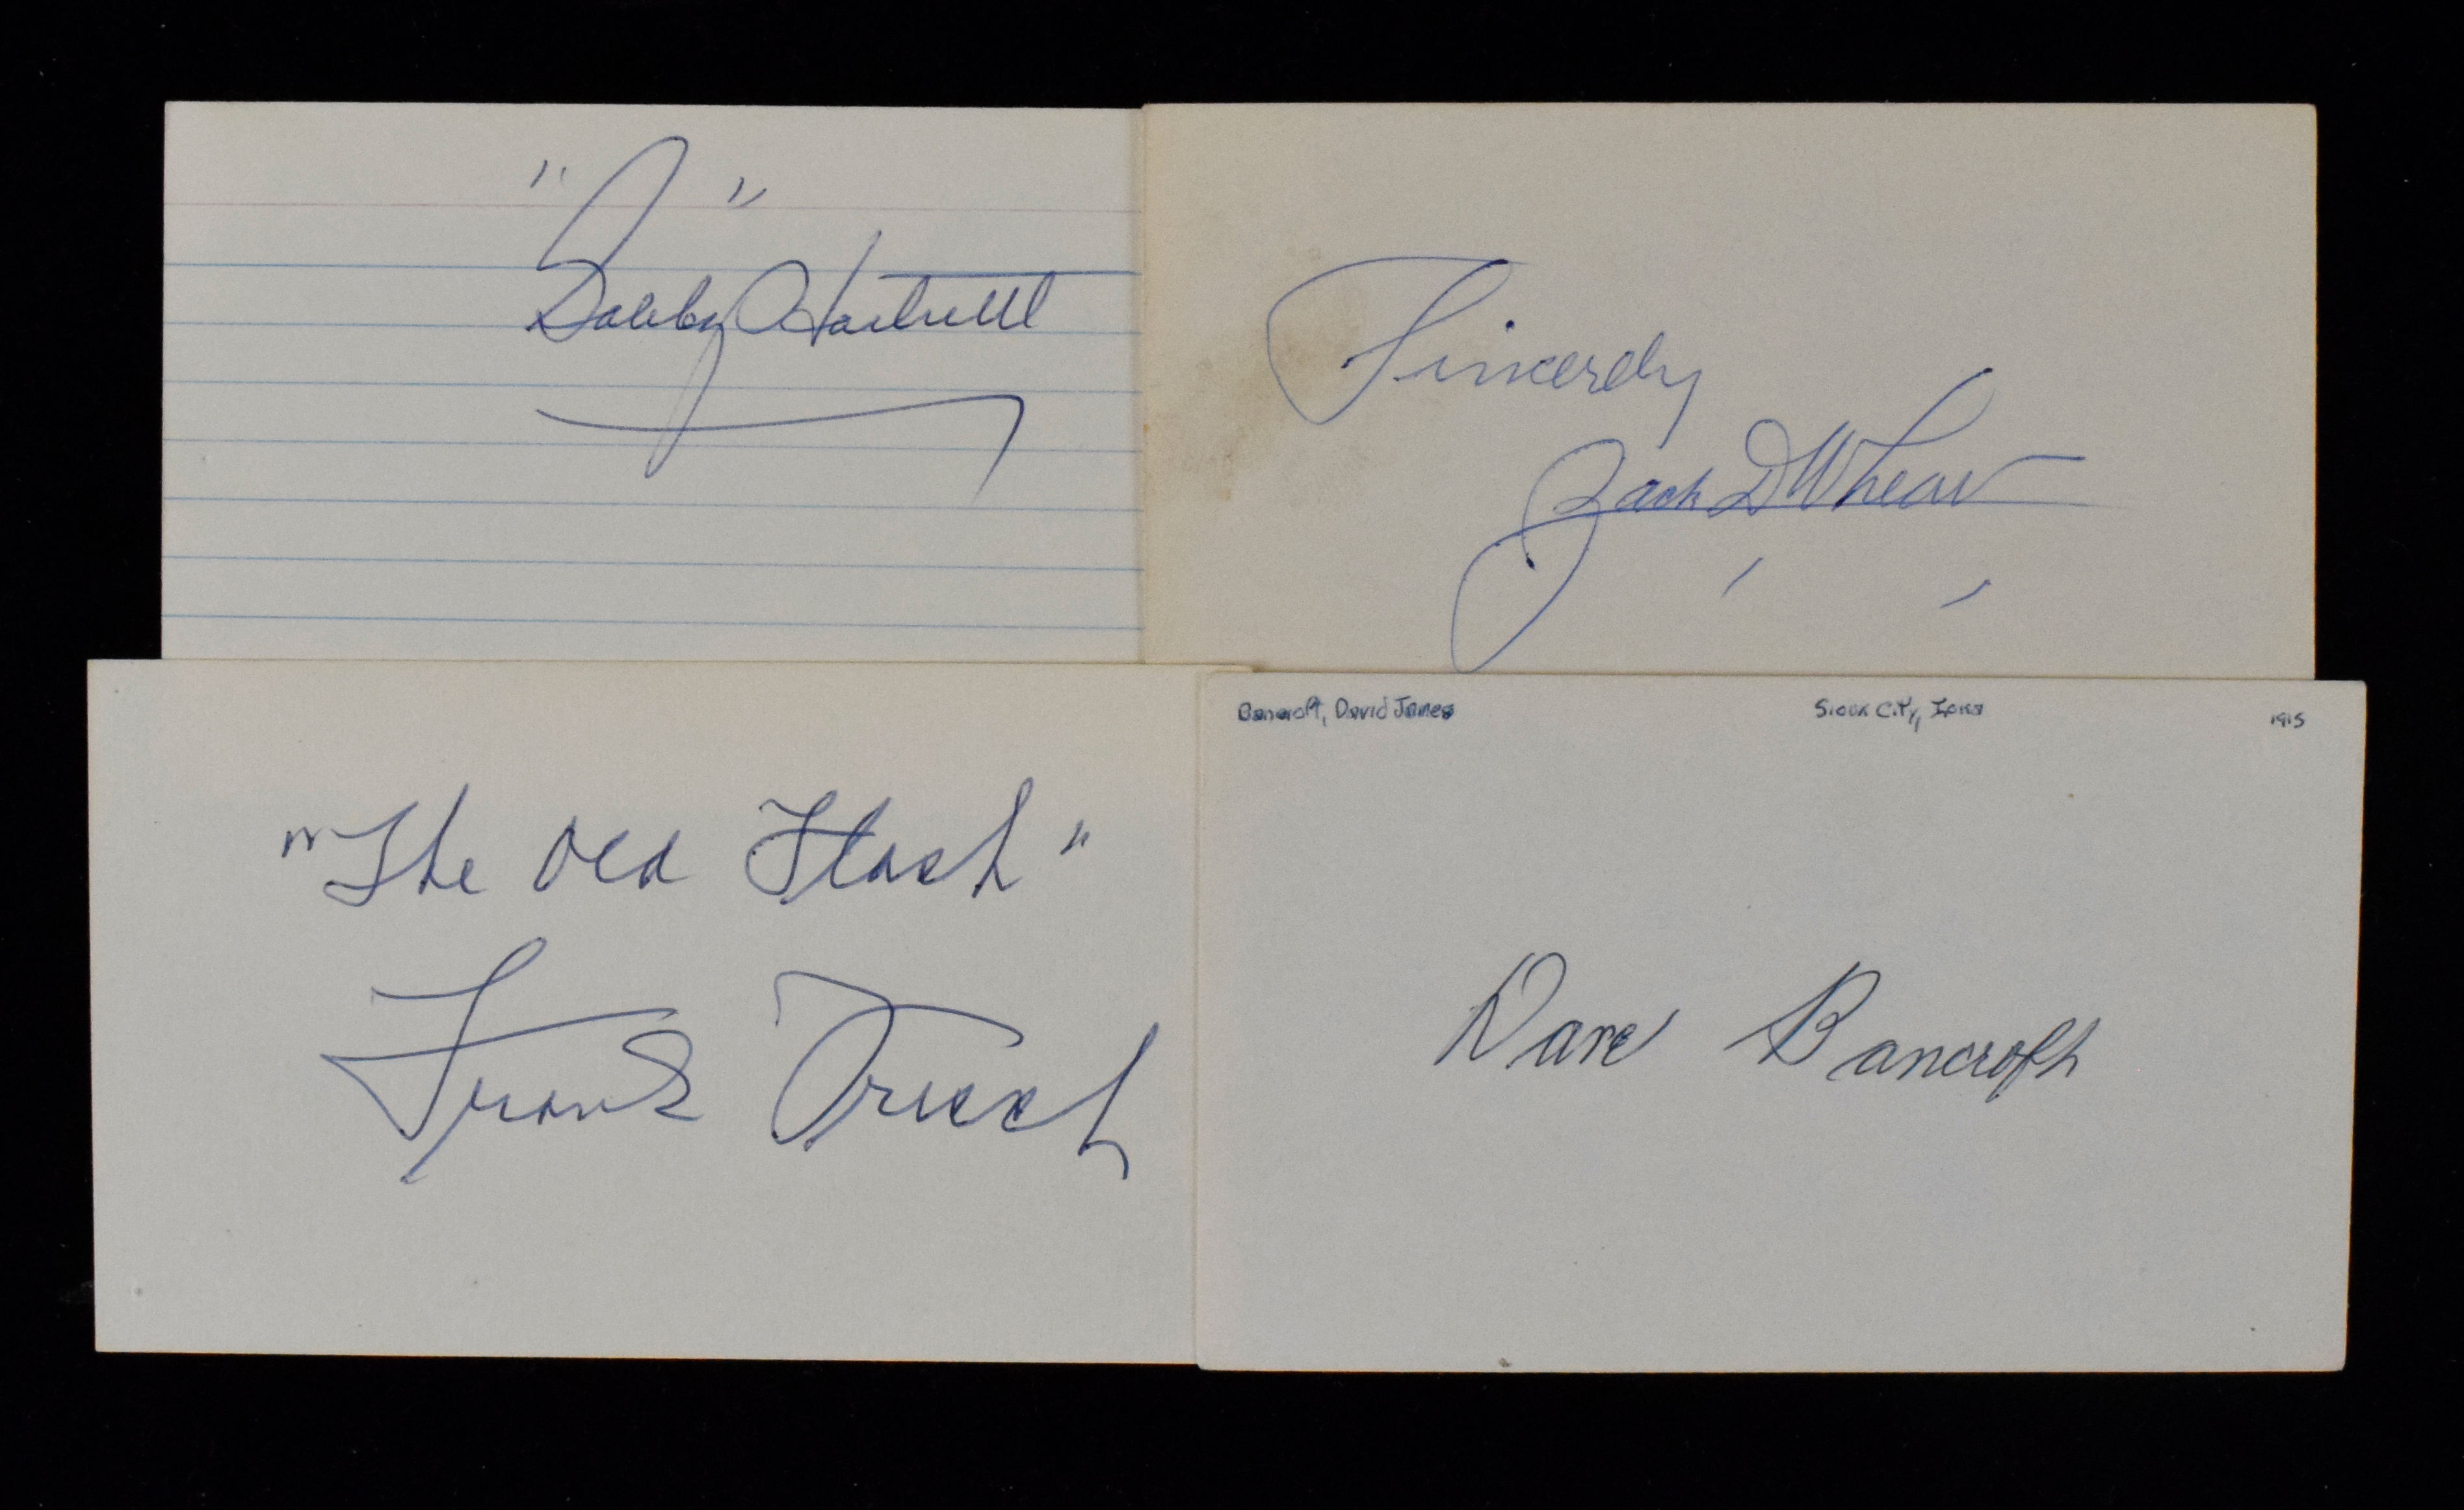 "Gabby" Hartnett
Sincerely
Zack D Wheat
"The Old Flash"
Frank Frisch
Bancroft, David James Sioux City, Iowa 1915
Dave Bancroft